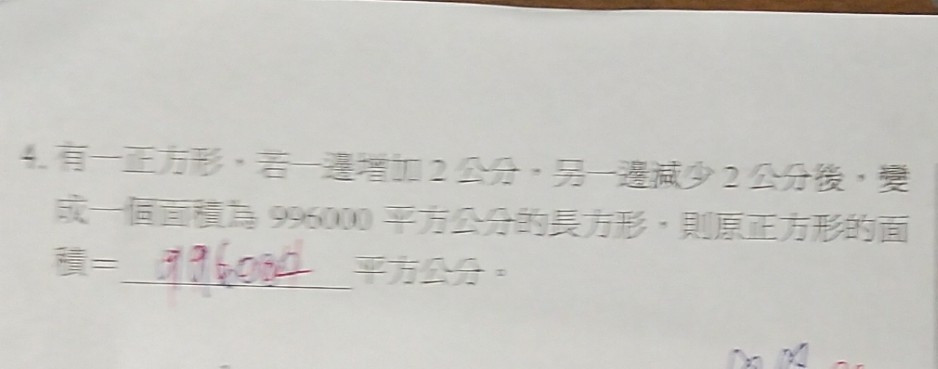 4. 有一正方形，若一邊增加 2 公分，另一邊減少 2 公分後，變
成一個面積為 996000 平方公分的長方形，則原正方形的面
積＝ 996004 平方公分。